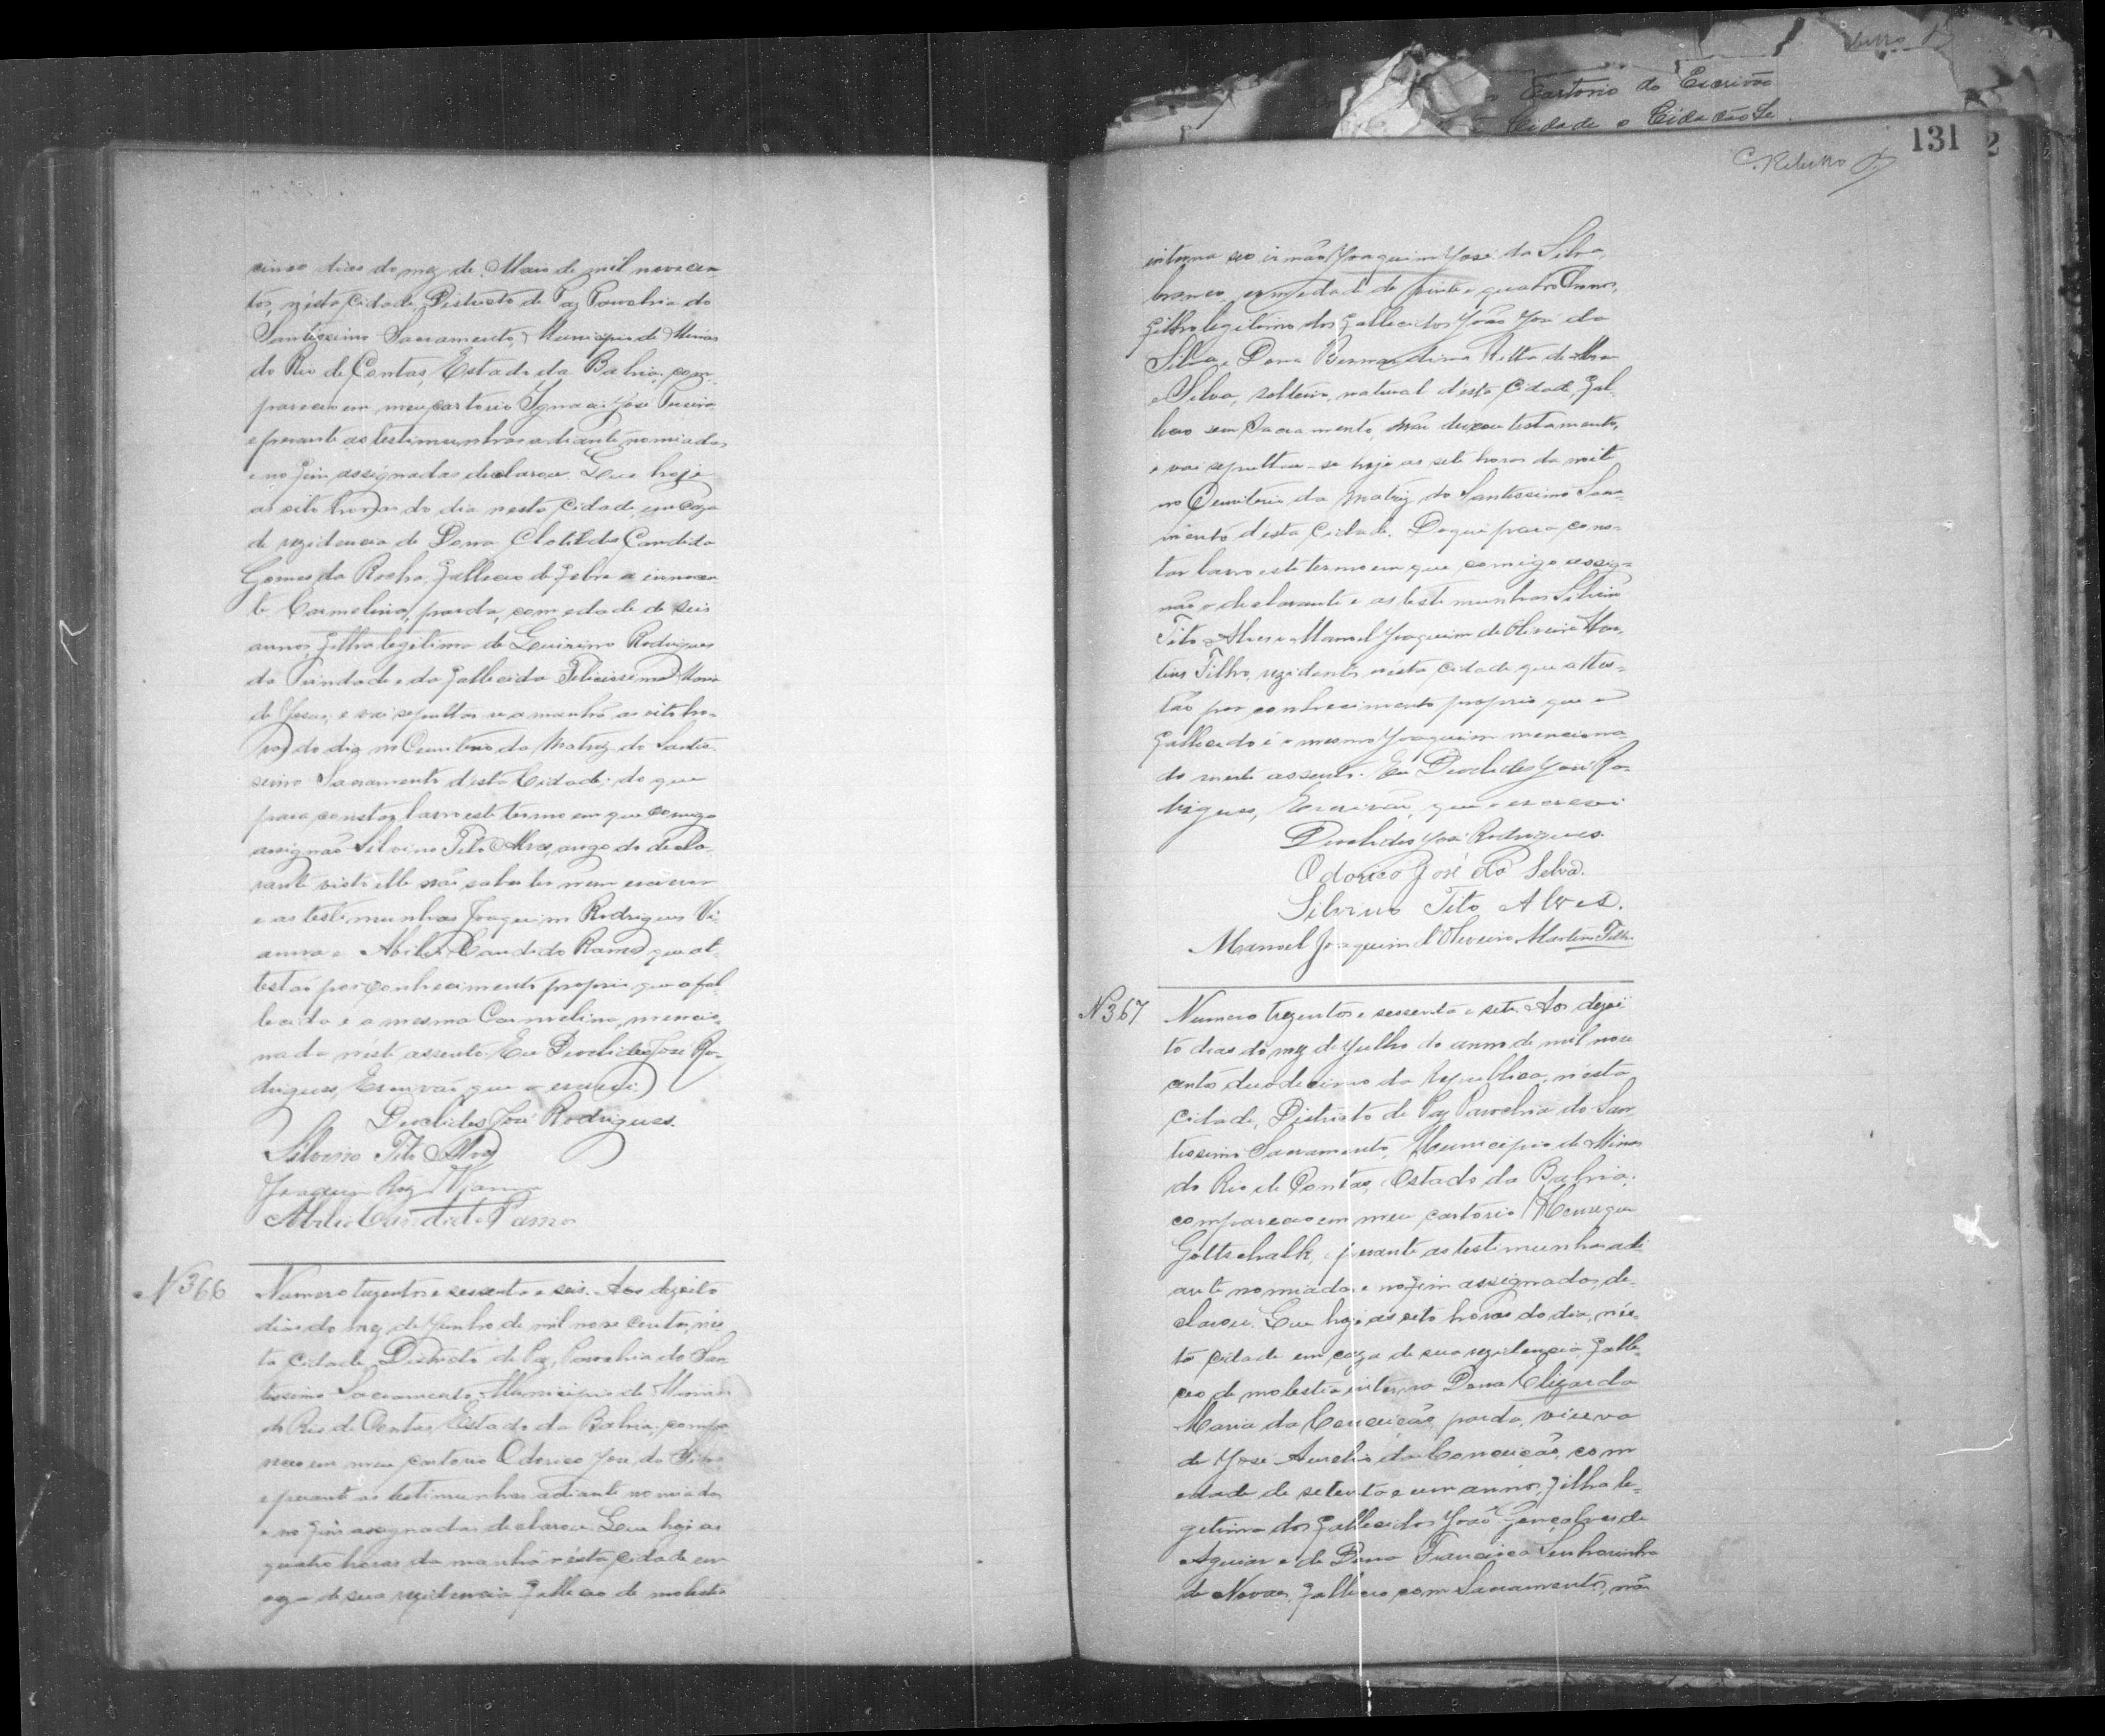 cinco dias do mez de Maio de mil novecen
tos, nésta Cidade, Districto de Paz Parochia do
Santissimo Sacramento, Municipio de Minas
do Rio de Contas, Estado da Bahia, com-
pareceu em meu cartorio Ignacio José Pereira
e perante as testimunhas adiante nomiadas
e no fim assignadas declarou. Que hoje
as oito horas do dia nesta Cidade, em caza
de rezidencia de Dona Clotildes Candida
Gomes da Rocha, falleceo de febre a innocen
te Carmelina, parda, com edade de seis
annos, filha legitima de Quirino Rodrigues
da Trindade e da fallecida Felicissima Maria
de Jesus, e vai sepultar se amanhã as oito ho-
ras do dia no Cemiterio da Matriz do Santis-
simo Sacramento desta Cidade; do que
para constar lavro este termo em que comigo
assignão Silvino Tito Alves, a rogo do decla-
rante visto elle não saber ler nem escrever
e as testimunhas Joaquim Rodrigues Vi-
anna e Abilio Candido Ramos que at-
testão por conhecimento proprio que a fal-
lecida é a mesma Carmelina, mencio-
nada néste assento. Eu Deoclides José Ro-
drigues, Escrivão que o escrevi
Deoclides José Rodrigues.
Silvino Tito Alves
Joaquim Roiz Vianna
Abilio Candido Ramos
Nº 366
Numero trezentos e sessenta e seis. Aos dezoito
dias do mez de Junho de mil nove centos, nés-
ta Cidade, Districto de Paz, Parochia do San-
tissimo Sacramento, Municipio de Minas
do Rio de Contas, Estado da Bahia, compa
receo em meu cartorio Odorico José da Silva
e perante as testimunhas adiante nomiadas
e no fim assignadas declarou. Que hoje as
quatro horas da manhã nésta cidade em
caza de sua rezidencia falleceo de molestia
o Cartorio do Escrivão
Cidade o Cidadão
131
C. Ribeiro
interna seo irmão Joaquim José da Silva,
branco, com edade de vinte e quatro annos,
filho legitimo dos fallecidos João José da
Silva e Dona Bernardina Ritta de
e Silva, solteiro, natural desta Cidade, fal-
leceo sem Sacramento, não deixou testamento,
e vai sepultar-se hoje as sete horas da noite
no Cemiterio da Matriz do Santissimo Sacra-
mento desta Cidade. Do que para cons-
tar lavro este termo em que comigo assig-
não o declarante e as testimunhas Silvino
Tito Alves e Manoel Joaquim de Oliveira Mar-
tins Filho, rezidentes nésta Cidade que attes-
tão por conhecimento proprio que o
fallecido é o mesmo Joaquim menciona-
do neste assento. Eu Deoclides José Ro-
drigues, Escrivão, que o escrevi
Deoclides José Rodrigues.
Odorico José da Silva.
Silvino Tito Alves.
Manoel Joaquim d'Oliveira Martins Filho
Nº 367
Numero trezentos e sessenta e sete. Aos dezoi
to dias do mez de Julho do anno de mil nove
centos duodecimo da Republica, nésta
cidade, Districto de Paz Parochia do San
tissimo Sacramento, Municipio de Minas
do Rio de Contas, Estado da Bahia,
compareceo em meu cartorio Henrique
Gottschalk, perante as testimunhas adi
ante nomiadas e no fim assignadas, de-
clarou. Que hoje as oito horas do dia, nés-
ta Cidade em caza de sua rezidencia, falle-
ceo de molestia interna Dona Elizarda
Maria da Conceição, parda, viuva
de José Aurelio da Conceição, com
edade de setenta e um annos, filha le-
getima dos fallecidos João Gonçalves de
Aguiar e de Dona Francisca Senhorinha
de Novaes, falleceo com Sacramentos, não